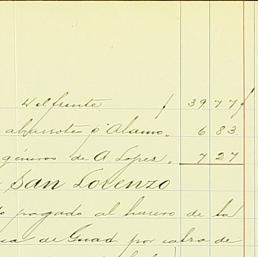 Del frente $ 39 77
abarrotes p' Alamo. 6 83
géneros de A Lopez. 7 27
San Lorenzo
pagado al herrero de la
de Guad por cobro de